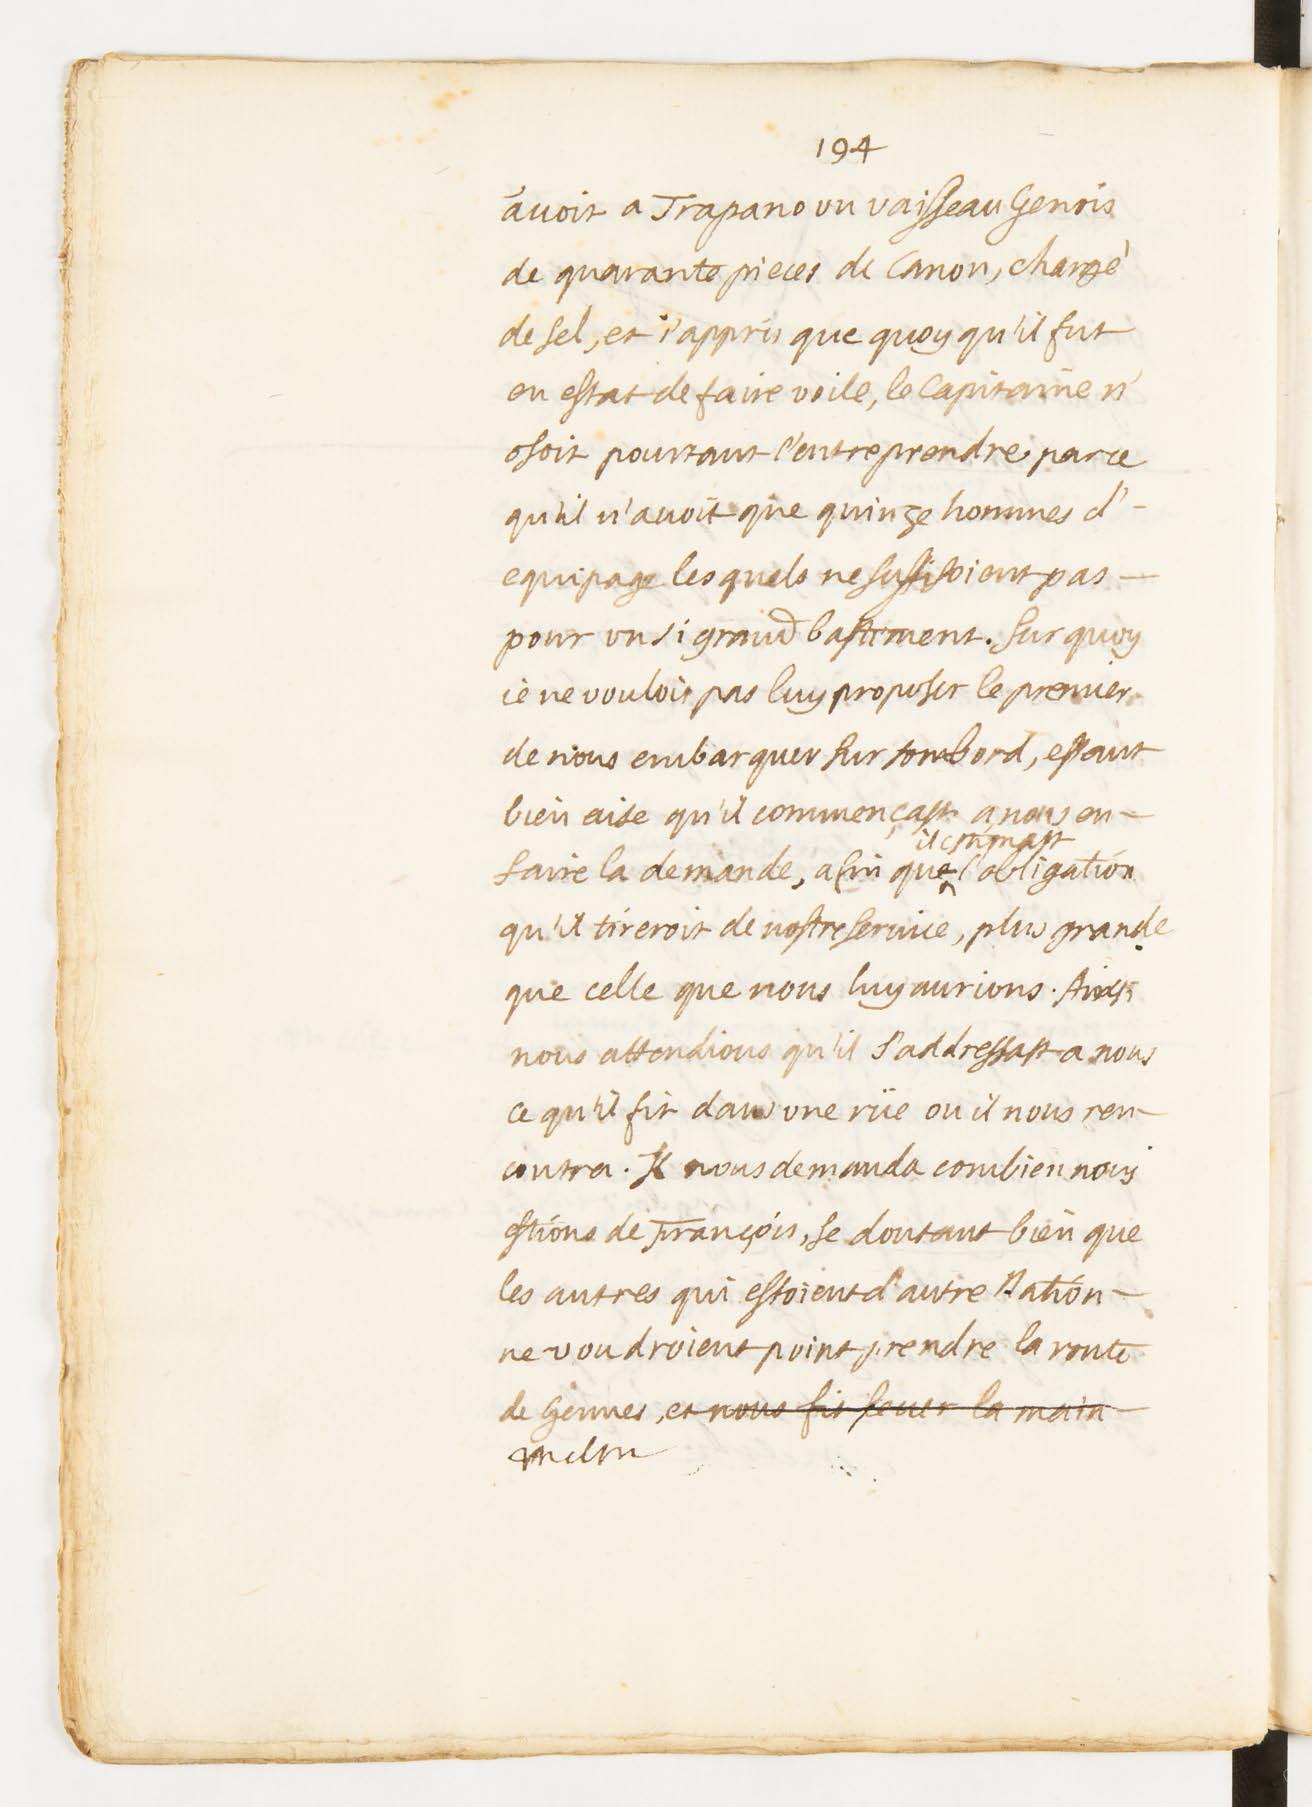 194
auoit a Trapano vn vaisseau Genois
de quarante pieces de Canon, chargé
de sel, et i'appris que quoy qu'il fut
en estat de faire voile, le Capitaine n'
osoit pourtant l'entreprendre parce
qu'il n'auoit que quinze hommes d'-
equipage lesquels ne suffisoient pas -
pour vn si grand bastiment. Sur quoy
ie ne voulois pas luy proposer le premier
de nous embarquer sur son bord, estant
bien aise qu'il commençast a nous en-
il estimast
faire la demande, afin que ^ l'obligation
qu'il tireroit de nostre seruice, plus grande
que celle que nous luy aurions. Ainsi
nous attendions qu'il s'addressast a nous
ce qu'il fit dans vne rüe ou il nous ren-
contra. Il nous demanda combien nous
estions de François, se doutant bien que
les autres qui estoient d'autre Nation -
ne voudroient point prendre la route
de Gennes, et nous fit leuer la main -